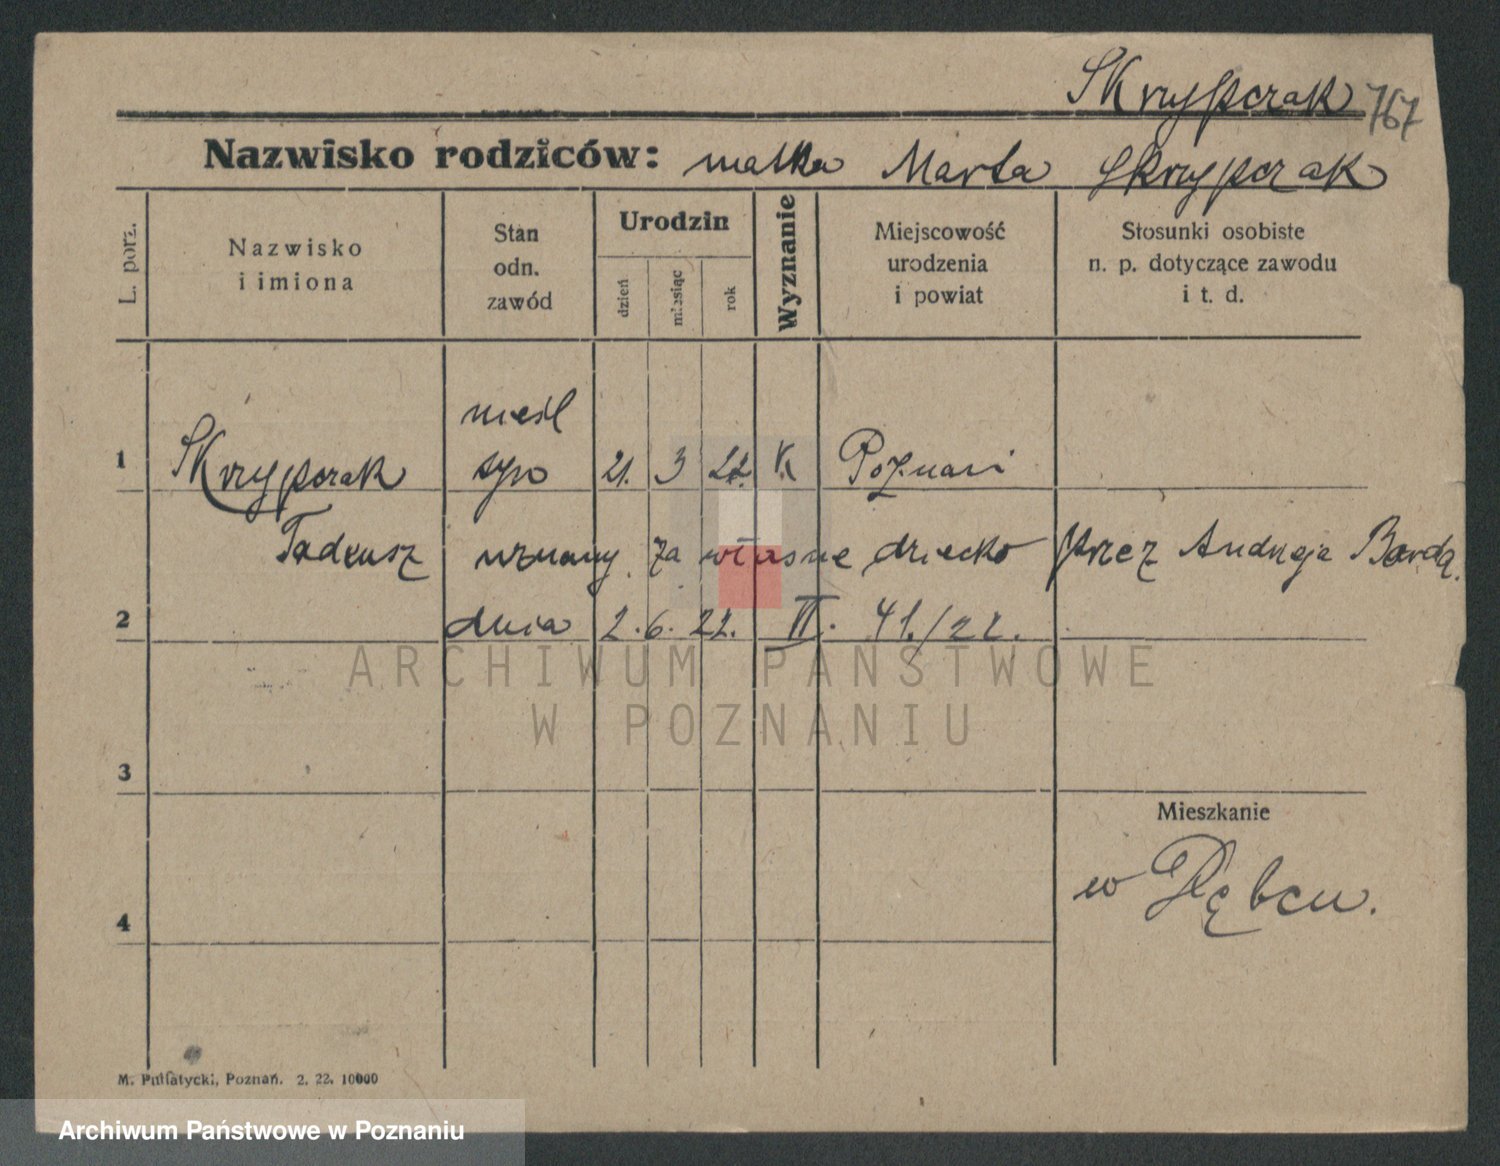 Skrzypczak 767
Nazwisko rodziców: matka Marta Skrzypczak
L. porz.
Nazwisko
i imiona
Stan
odn.
zawód
Urodzin
dzień
miesiąc
rok
Wyznanie
Miejscowość
urodzenia
i powiat
Stosunki osobiste
n. p. dotyczące zawodu
i t. d.
nieśl
1 Skrzypczak syn 21. 3 22. K Poznań
Tadeusz uznany za własne dziecko przez Andrzeja Bardę.
2 dnia 2. 6. 22. VI. 41./22.
ARCHIWUM PAŃSTWOWE
W POZNANIU
3
Mieszkanie
w Dębcu.
4
M. Putiatycki, Poznań. 2. 22. 10000
Archiwum Państwowe w Poznaniu